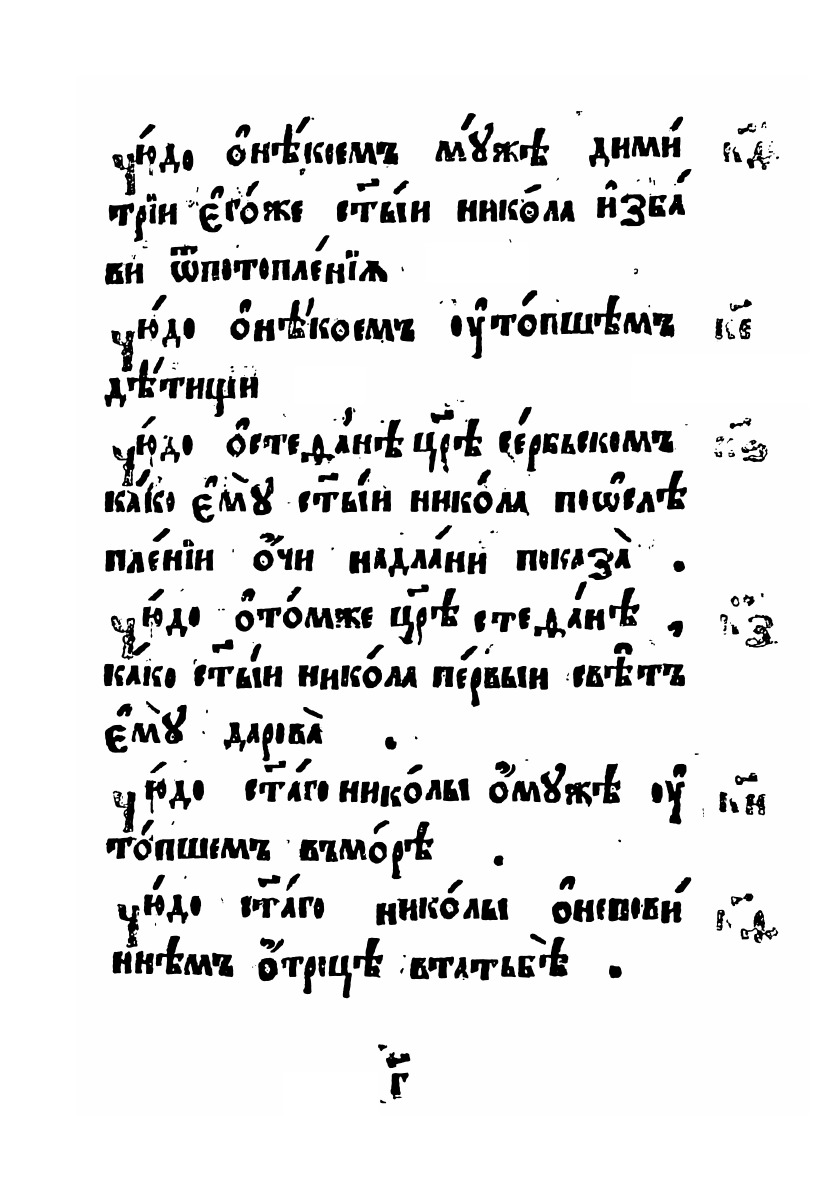 чю́до о҆нѣ́коемъ мꙋ́жѣ дими́ к҃д
трїи є҆го́же ст҃ы́и нико́ла и҆зба́
ви ѿпотопле́нїѧ
чю́до о҆нѣ́коемъ оу҆то́пшѣмъ к҃е
дѣ́тищи
чю́до о҆стеѳа́нѣ цр҃ѣ се́рбьском к҃ѕ
ка́ко є҆мꙋ̀ ст҃ы́и нико́ла поѡ҆слѣ
пле́нїи ѻ҆́чи надла́ни показа̀ .
чю́до о҆то́мже цр҃ѣ стеѳа́нѣ , к҃з
ка́ко ст҃ы́и нико́ла пе́рвыи свѣ́тъ
є҆мꙋ̀ дарова̀ .
чю́до ст҃а́го нико́лы ѻ҆мꙋ́жѣ оу҆ к҃и
то́пшемъ вмо́рѣ .
чю́до ст҃а́го нико́лы о҆непови́ к҃ѳ
ннѣмъ ѻ҆́троцѣ втатьбѣ̀ .
г҃